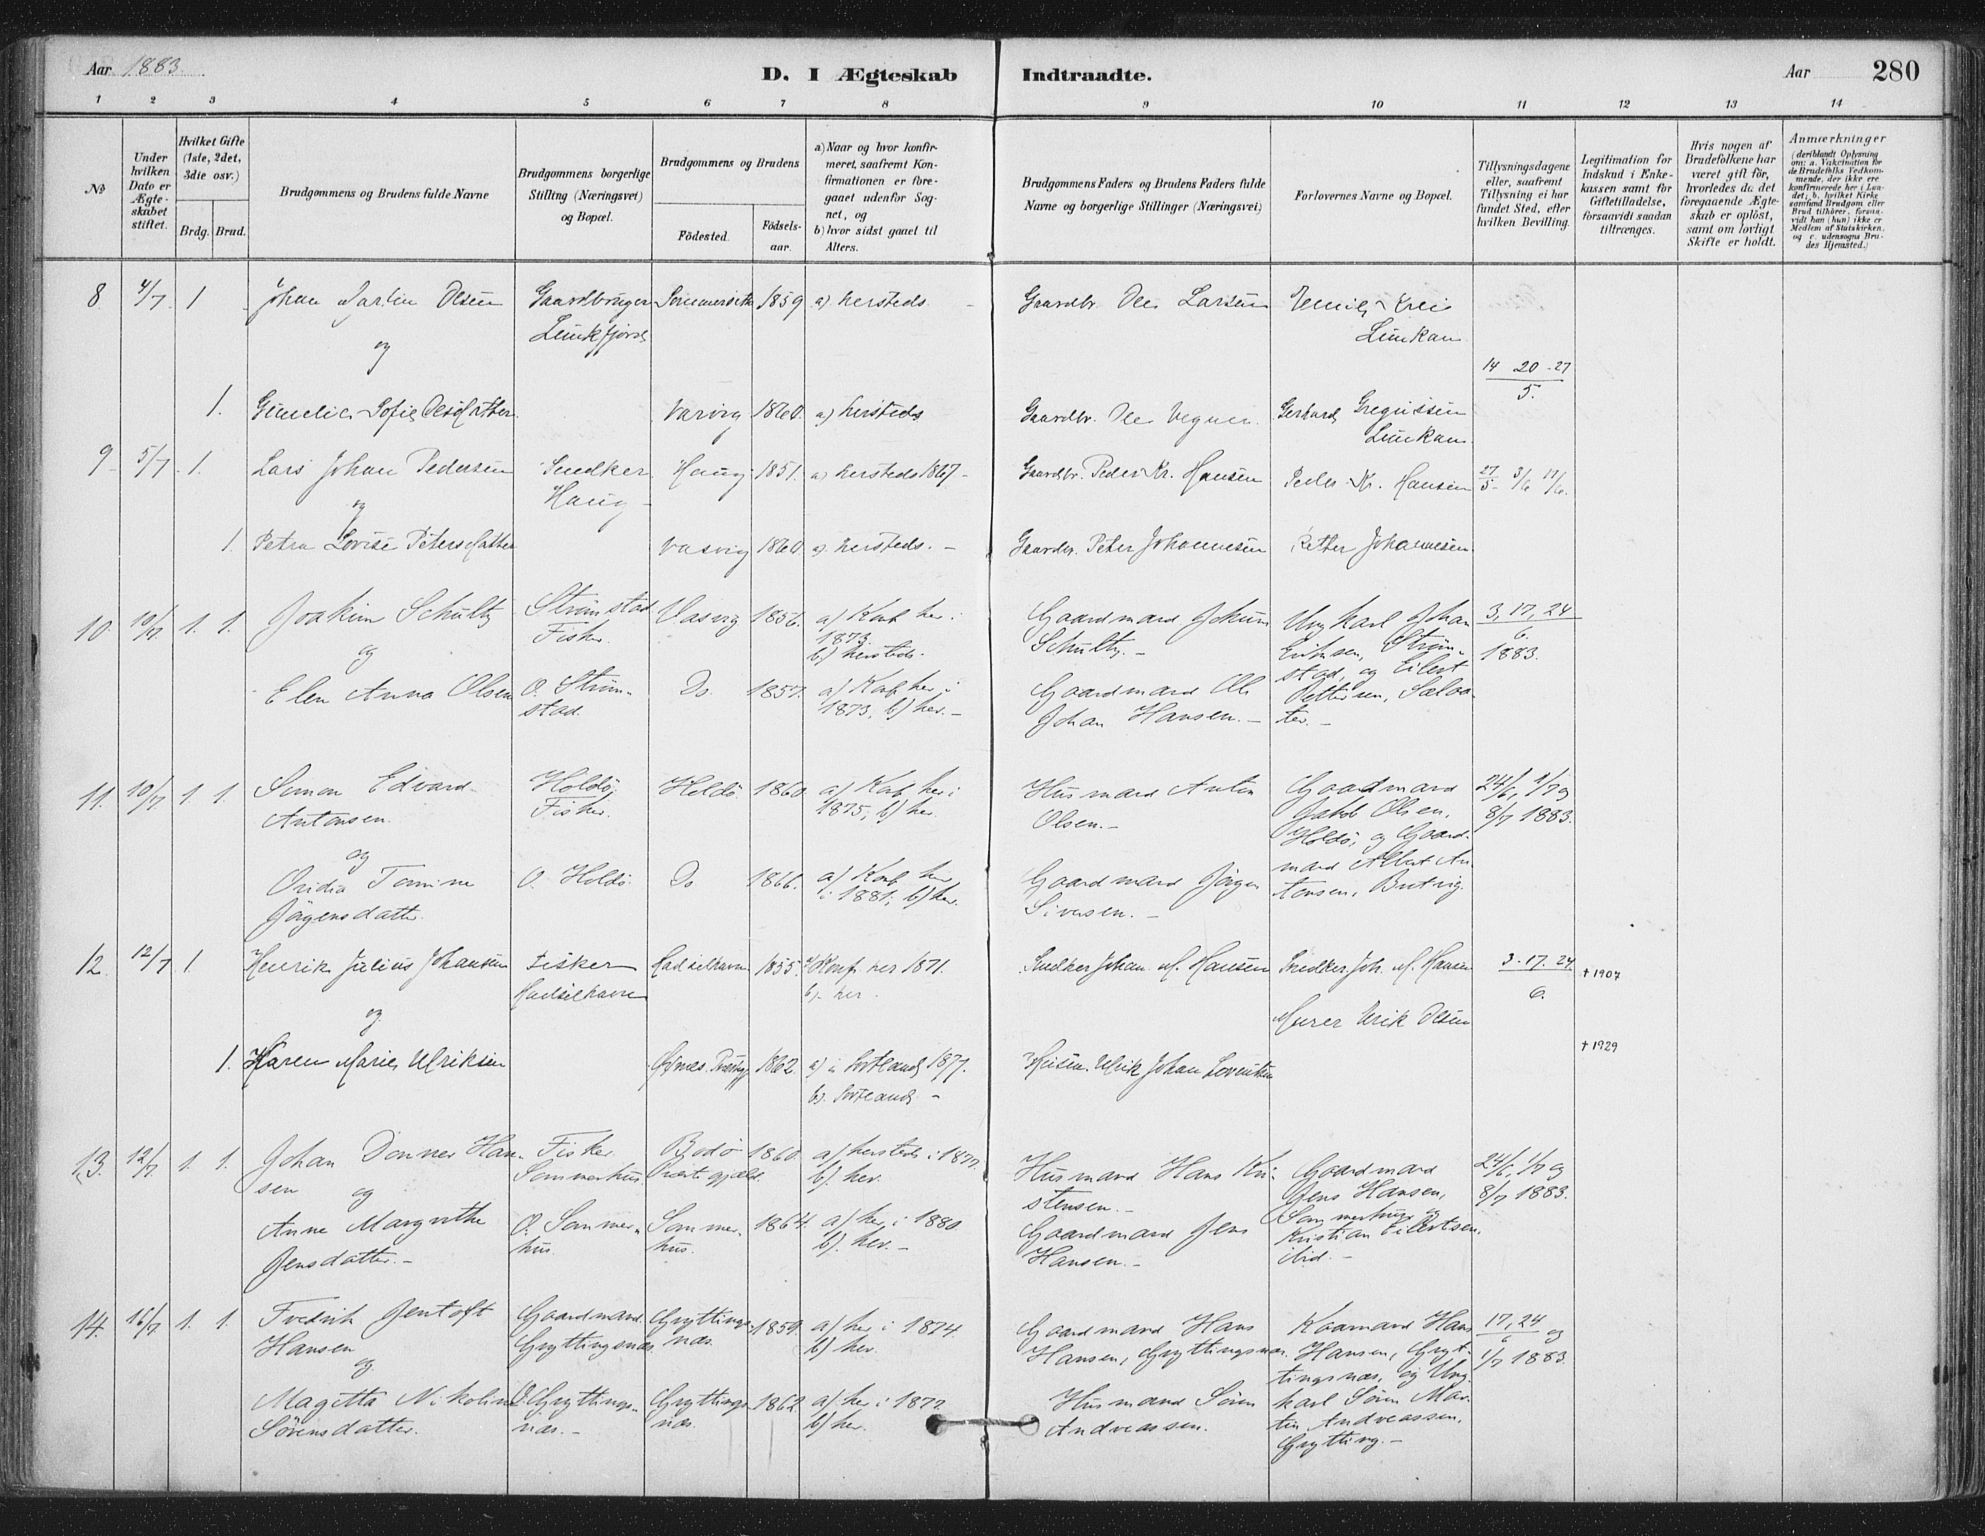 Aar 1883.
D. I Ægteskab Indtraadte.
Aar 280
1 2 3 4 5 6 7 8 9 10 11 12 13 14
No
Under hvilken Dato er Ægteskabet stiftet.
Hvilket Gifte (1ste, 2det, 3die osv.)
Brdg. Brud.
Brudgommens og Brudens fulde Navne
Brudgommens borgerlige Stilling (Næringsvei) og Bopæl.
Brudgommens og Brudens
Fødested.
Fødselsaar.
a) Naar og hvor konfirmeret, saafremt Konfirmationen er foregaaet udenfor Sognet, og
b) hvor sidst gaaet til Alters.
Brudgommens Faders og Brudens Faders fulde Navne og borgerlige Stillinger (Næringsvei)
Forlovernes Navne og Bopæl.
Tillysningsdagene eller, saafremt Tillysning ei har fundet Sted, efter hvilken Bevilling.
Legitimation for Indskud i Enkekassen samt for Giftetilladelse, forsaavidt saadan tiltrænges.
Hvis nogen af Brudefolkene har været gift før, hvorledes da det foregaaende Ægteskab er opløst, samt om lovligt Skifte er holdt.
Anmærkninger
(deriblandt Oplysning om: a. Vakcination for de Brudefolks Vedkommende, der ikke ere konfirmerede her i Landet; b. hvilket Kirkesamfund Brudgom eller Brud tilhører, forsaavidt han (hun) ikke er Medlem af Statskirken, og c. udensogns Brudes Hjemsted.)
8 4/7 1 Johan Martin Olsen Gaardbruger 1859 a) hersteds Gaardbr. Ole Larsen
og
14 20 - 27
5.
1. Sofie Olesdatter 1860. a) hersteds Gaardbr. Ole Gerhard
9 5/7 1. Lars Johan Pedersen Snedker Haug 1851. a) hersteds 1867 - Gaardbr. Peder Kr. Hansen Peder Kr. Hansen 27/5 3/6 17/6.
og Haug
1. Petra Lovise Petersdatter Vasvig 1860 a) hersteds. - Gaardbr. Peter Johannesen Petter Johannesen
10. 10/7 1. 1. Joakim Schultz Strømstad Vasvig 1856. a) Konf. her i Gaardmand Schultz. - Ungkarl Johan 3, 17, 24
Fisker. 1873. 6.
og b) hersteds. Eriksen, Strømstad, og Eilert 1883.
Elen Anna Olsen O. Strømstad. Do 1857. a) Konf. her i 1873, b) her. - Gaardmand Ole Johan Hansen. - Pettersen,
11. 10/7 1 1. Simon Edvard Antonsen. Holdø. Fisker. Holdø. 1860. a) Konf. her i 1875, b) her. Husmand Anton Olsen. - Gaardmand Jakob Olsen, Holdø, og Gaardmand Albert Antonsen, 24/6, 1/7 og 8/7 1883.
og
Ovidia Tomine Jørgensdatter. O. Holdø. Do 1866. a) Konf. her i 1881; b) her. Gaardmand Jørgen Siversen. -
12. 12/7 1 Henrik Julius Johansen Fisker Hadselhavn Hadselhavn 1855. a) Konf. her 1871. b). her. Snedker Johan M. Hansen Snedker Joh. M. Hansen 3 - 17. 24 † 1907
6.
og Murer Ulrik Olsen
1. Karen Marie Ulriksen 1862. a) i Sortland 1877. b). Sortland - Ulrik Johan † 1929
13. 12/7 1. 1. Johan Donner Hansen Fisker Sommerhus. Bodø Præstegjæld. 1860. a) hersteds i 1877. b). her. Husmand Hans Kristensen. - Gaardmand Jens Hansen, Sommerhus og Kristian Eilertsen, ibid. - 24/6, 1/7 og 8/7 1883.
og
Anne Margrethe Jensdatter. - O. Sommerhus. Sommerhus. 1864. a) her i 1880 b). her. - Gaardmand Jens Hansen. -
14. 16/7 1. 1. Fredrik Jentoft Hansen Gaardmand. Grytingsnæs Gryttingsnæs. 1859. a) her i 1874. b) her. Gaardmand Hans Hansen, Gryttingsnæs. Kaarmand Hans Hansen, Gryttingsnæs, og Ungkarl Søren Martin Andreassen, Grytting. - 17, 24
6 og
1/7 1883.
og
Magitta Nikoline Sørensdatter. O. Gryttingsnæs. - Gryttingsnæs 1862. a) her i 1877 b) her. Husmand Søren Andreassen.